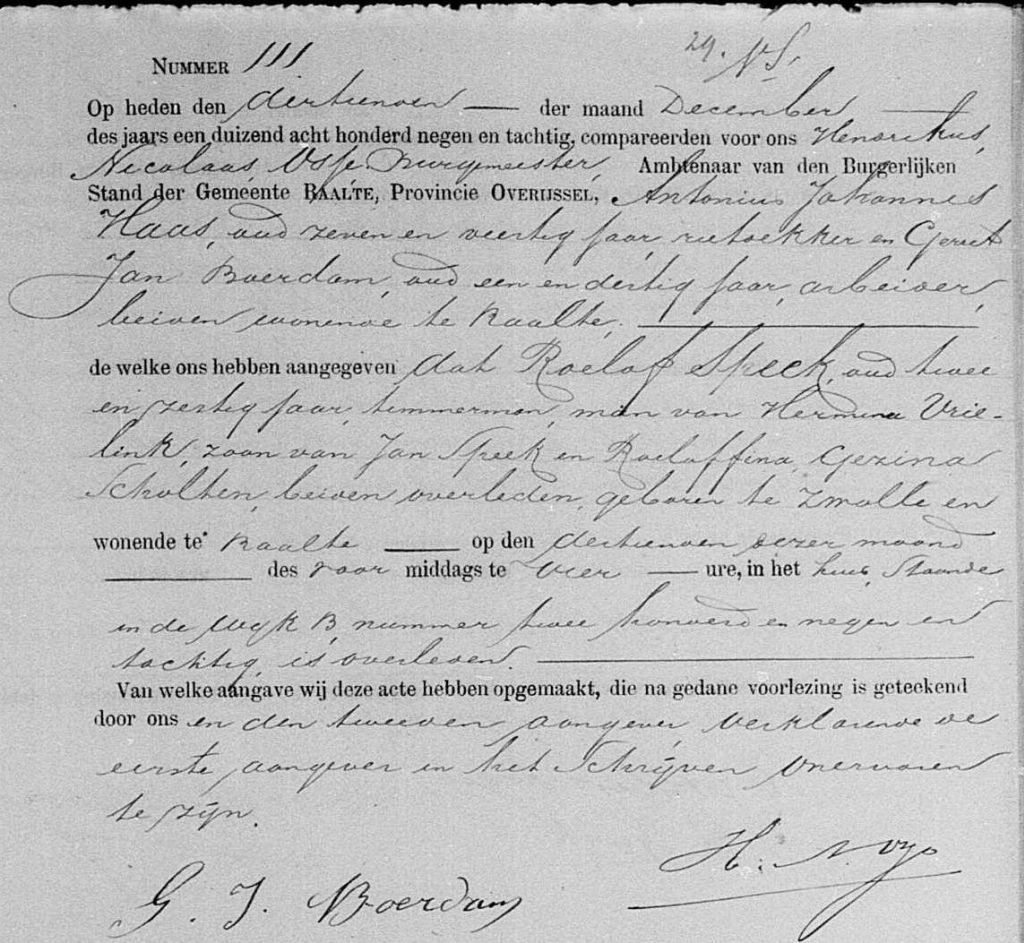 29. NS.
NUMMER 111
Op heden den dertienden — der maand December —
des jaars een duizend acht honderd negen en tachtig, compareerden voor ons Henrikus,
Nicolaas, Burgemeister, Ambtenaar van den Burgerlijken
Stand der Gemeente RAALTE, Provincie OVERIJSSEL, Antonius Johannes
Haas, oud zeven en veertig jaar, rietdekker en Gerrit
Jan Boerdam, oud een en dertig jaar, arbeider,
beiden wonende te Raalte, —
de welke ons hebben aangegeven dat Roelof Speek, oud twee
en zestig jaar, timmerman, man van Hermina Vrie-
link, zoon van Jan Speek en Roeloffina Gezina
Scholten, beiden overleden, geboren te Zwolle en
wonende te Raalte — op den dertienden dezer maand
— des voor middags te vier — ure, in het huis, staande
in de wijk B, nummer twee honderd en negen en
tachtig, is overleden. —
Van welke aangave wij deze acte hebben opgemaakt, die na gedane voorlezing is geteekend
door ons en den tweeden aangever, verklarende de
eerste aangever in het schrijven onervaren
te zijn.
H. N.
G. J. Boerdam